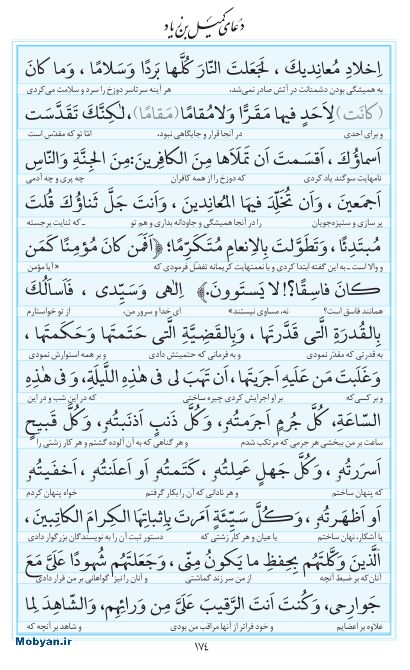 دعای کمیل بن زیاد
اِخلادِ مُعانِدیكَ ، لَجَعَلتَ النّارَ کُلَّها بَردًا وَسَلامًا ، وَما کانَ
به همیشگی بودن دشمنانت در آتش صادر نمی‌شد، هر آینه سرتاسر دوزخ را سرد و سلامت می‌کردی
(کانَت) لِاَحَدٍ فیها مَقَرًّا وَلامُقامًا (مَقامًا) ، لٰکِنَّكَ تَقَدَّسَت
و برای احدی در آنجا قرار و جایگاهی نبود، امّا تو که مقدّس است
اَسماؤُكَ ، اَقسَمتَ اَن تَملَاَها مِنَ الکافِرینَ: مِنَ الجِنَّةِ وَالنّاسِ
نامهایت سوگند یاد کردی که دوزخ را از همه کافران چه پری و چه آدمی
اَجمَعینَ ، وَاَن تُخَلِّدَ فیهَا المُعانِدینَ ، وَاَنتَ جَلَّ ثَناؤُكَ قُلتَ
پر سازی و ستیزه‌جویان را در آنجا همیشگی و جاودانه بداری و هم تو ـ که ثنایت برجسته
مُبتَدِئًا ، وَتَطَوَّلتَ بِالاِنعامِ مُتَکَرِّمًا؛ ﴿اَفَمَن کانَ مُؤمِنًا کَمَن
و والا است ـ به این گفته ابتدا کردی و با نعمتهایت کریمانه تفضّل فرمودی که « آیا مؤمن
کانَ فاسِقًا؟! لا یَستَوونَ.﴾ اِلٰهی وَسَیِّدی ، فَاَسأَلُكَ
همانند فاسق است؟ نه، مساوی نیستند» ای خدا و سرور من، از تو خواستارم
بِالقُدرَةِ الَّتی قَدَّرتَها ، وَبِالقَضِیَّةِ الَّتی حَتَمتَها وَحَکَمتَها ،
به قدرتی که مقدّر نمودی و به فرمانی که حتمیتش دادی و بر همه استوارش نمودی
وَغَلَبتَ مَن عَلَیهِ اَجرَیتَها ، اَن تَهَبَ لی فی هٰذِهِ اللَّیلَةِ، وَفی هٰذِهِ
و بر کسی که بر او اجرایش کردی چیره ساختی که در این شب و در این
السّاعَةِ، کُلَّ جُرمٍ اَجرَمتُهُ، وَکُلَّ ذَنبٍ اَذنَبتُهُ، وَکُلَّ قَبیحٍ
ساعت بر من ببخشی هر جرمی که مرتکب شدم و هر گناهی که به آن آلوده گشتم و هر کار زشتی را
اَسرَرتُهُ ، وَکُلَّ جَهلٍ عَمِلتُهُ ، کَتَمتُهُ اَو اَعلَنتُهُ ، اَخفَیتُهُ
که پنهان ساختم و هر نادانی که آن را بکار گرفتم خواه پنهان کردم
اَو اَظهَرتُهُ ، وَکُلَّ سَیِّئَةٍ اَمَرتَ بِاِثباتِهَا الکِرامَ الکاتِبینَ ،
یا آشکار، نهان ساختم یا عیان و هر کار زشتی که دستور ثبت آن را به نویسندگان بزرگوار دادی
الَّذینَ وَکَّلتَهُم بِحِفظِ ما یَکونُ مِنّی ، وَجَعَلتَهُم شُهودًا عَلَیَّ مَعَ
آنان که بر ضبط آنچه از من سر زند گماشتی و آنان را نیز گواهانی بر من قرار دادی
جَوارِحی، وَکُنتَ اَنتَ الرَّقیبَ عَلَیَّ مِن وَرائِهِم، وَالشّاهِدَ لِما
علاوه بر اعضایم و خود فراتر از آنها مراقب من بودی و شاهد بر آنچه که
١٧٤
Mobyan.ir